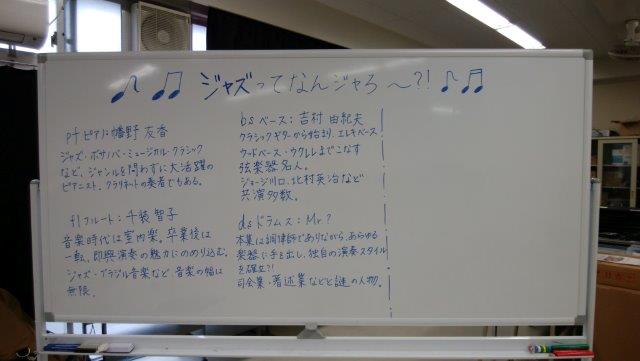 ♪ ♫ ジャズってなんジャろ〜?! ♪ ♬
pf ピアノ: 幡野 友香
ジャズ・ボサノバ・ミュージカル・クラシック
など、ジャンルを問わずに大活躍の
ピアニスト。クラリネットの奏者でもある。
fl フルート: 千袋 智子
音楽時代は室内楽。卒業後は
一転、即興演奏の魅力にのめり込む。
ジャズ・ブラジル音楽など音楽の幅は
無限。
bs ベース: 吉村 由紀夫
クラシックギターから始まり、エレキベース
ウッドベース・ウクレレまでこなす
弦楽器名人。
ジョージ川口、北村英治など
共演多数。
ds ドラムス: Mr.?
本業は調律師でありながら、あらゆる
楽器に手を出し、独自の演奏スタイル
を確立?!
司会業・著述業などと謎の人物。